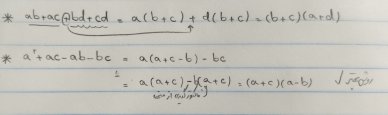 * ab+ac+bd+cd = a(b+c) + d(b+c) = (b+c)(a+d)
* a²+ac-ab-bc = a(a+c-b) - bc
= a(a+c) - b(a+c) = (a+c)(a-b)